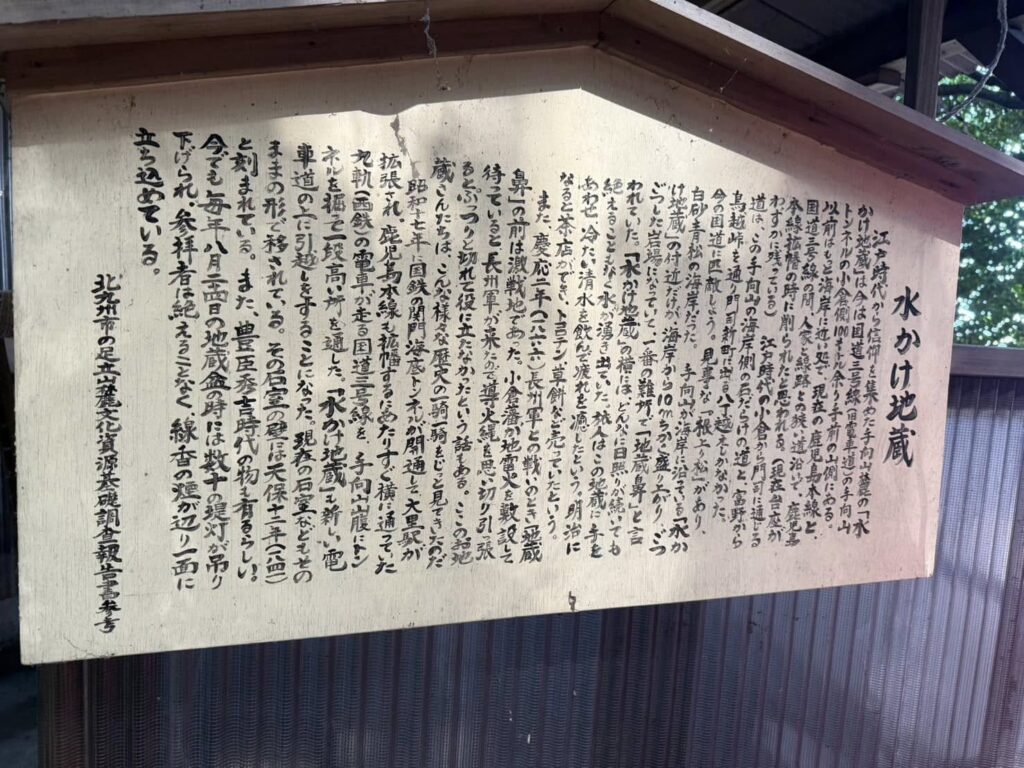 水かけ地蔵
江戸時代から信仰を集めた手向山麓の「水
かけ地蔵」は今は国道三号線(旧電車道)の手向山
トンネルの小倉側100まとる余り手前の山側にある。
以前はもっと海岸に近い処で、現在の鹿児島本線と、
国道三号線の間、人家と線路との狭い道沿いで、鹿児島
本線拡幡の時に削られたと思われる。(現在台座が
わずかに残っている) 江戸時代の小倉から門司に通じる
道は、この手向山の海岸側の石だらけの道と、富野から
鳥越峠を通り門司新町に出る八丁越えしかなかった。
今の国道に匹敵しよう。 見事な「根上り松」があり、
白砂青松の海岸だった。 手向山が海岸に沿っている「水か
け地蔵」の付近だけが、海岸から10mちかく盛り上がり、ごつ
ごつした岩場になっていて、一番の難所で「地蔵鼻」と言
われていた。「水かけ地蔵」の横には、どんなに日照りが続いても
絶えることもなく水が湧き出ていた。旅人はこの地蔵に手を
あわせ、冷たい清水を飲んで疲れを癒したという。明治に
なると茶店ができ、トコロテン、草餅など売っていたという。
また、慶応二年(一八六六)長州軍との戦いのとき「地蔵
鼻」の前は激戦地であった。小倉藩が地電火を敷設して
待っていると、長州軍が来たので導火縄を思い切り引っ張
るとぷっつりと切れて役に立たなかったという話もある。ここのお地
蔵さんたちは、こんな様々な歴史の一齣一齣をじっと見てきたのだ
昭和十七年に国鉄の関門海底トンネルが開通して大里駅が
拡張され、鹿児島本線も拡幡するにあたりすぐ横に通っていた
九軌(西鉄)の電車が走る国道三号線を、手向山腹にトン
ネルを掘って一段高い所を通した。「水かけ地蔵」も新しい電
車道の上に引越しをすることになった。現在の石室などもその
ままの形で移されている。その石室の壁には天保十二年(一八四一)
と刻まれている。また、豊臣秀吉時代の物も有るらしい。
今でも毎年八月二四日の地蔵盆の時には数十の提灯が吊り
下げられ、参拝者は絶えることなく、線香の煙が辺り一面に
立ち込めている。
北九州市の足立山麓文化資源基礎調査報告書参考